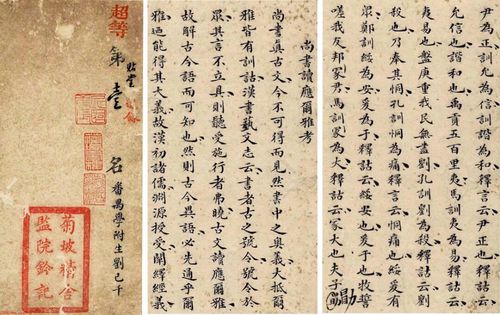 超等
第壹名
貼堂
番禺學附生劉己千
菊坡精舍
監院鈐記
尚書讀應爾雅考
尚書真古文今不可得而見然書中之奧義大抵爾
雅皆有訓詁漢書藝文志云書者古之號令號令於
眾其言不立具則聽受施行者弗曉古文讀應爾雅
故解古今語而可知也然則古今異語必先通乎爾
雅迺能得其大義故漢初諸儒淵源授受闡繹經義
尹為正訓允為信訓諧為和釋言云尹正也釋詁云
允信也諧和也禹貢五百里夷馬訓夷為易釋詁云
夷易也盤庚重我民無盡劉孔訓劉為殺釋詁云劉
殺也乃奉其恫孔訓恫為痛釋言云恫痛也綏爰有
眾鄭訓綏為安爰為于釋詁云綏安也爰于也牧誓
嗟我友邦冢君馬訓冢為大釋詁云冢大也夫子
勗